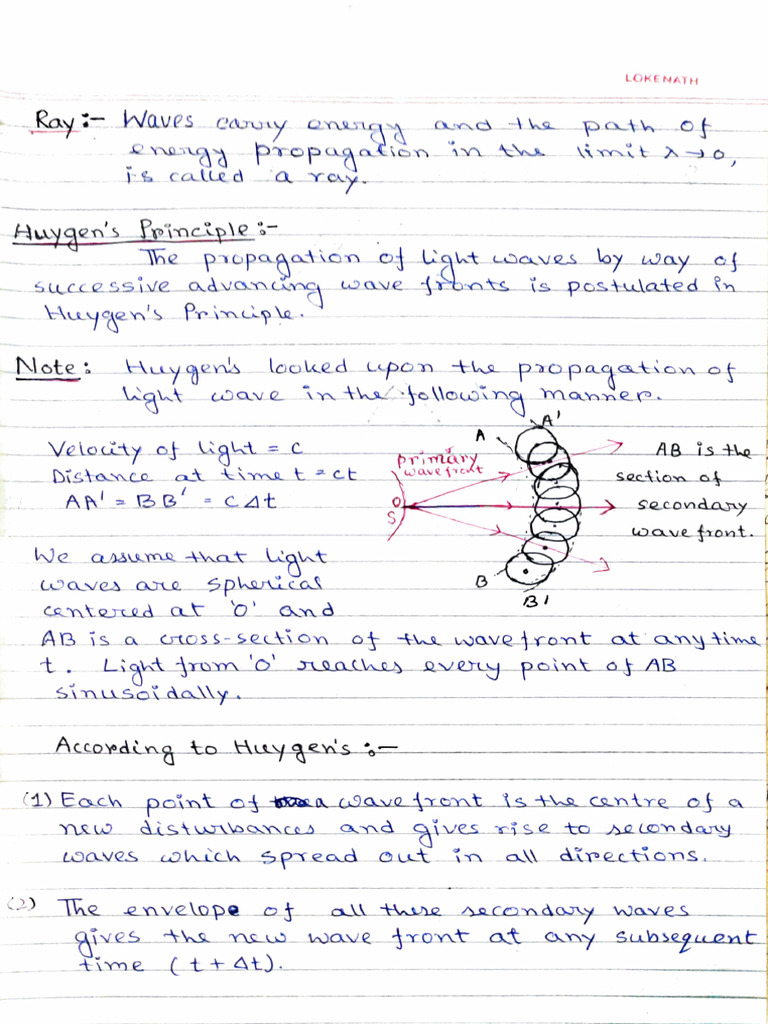 LOKENATH
Ray :- Waves carry energy and the path of
energy propagation in the limit λ→0,
is called a ray.
Huygen's Principle :-
The propagation of light waves by way of
successive advancing wave fronts is postulated in
Huygen's Principle.
Note : Huygen's looked upon the propagation of
light wave in the following manner.
Velocity of light = c
Distance at time t = ct
AA' = BB' = cΔt
A
A'
primary
wavefront
O
S
B
B'
AB is the
section of
secondary
wave front.
We assume that light
waves are spherical
centered at 'O' and
AB is a cross-section of the wavefront at any time
t. Light from 'O' reaches every point of AB
sinusoidally.
According to Huygen's :-
(1) Each point of a wave front is the centre of a
new disturbances and gives rise to secondary
waves which spread out in all directions.
(2) The envelope of all these secondary waves
gives the new wave front at any subsequent
time (t + Δt).